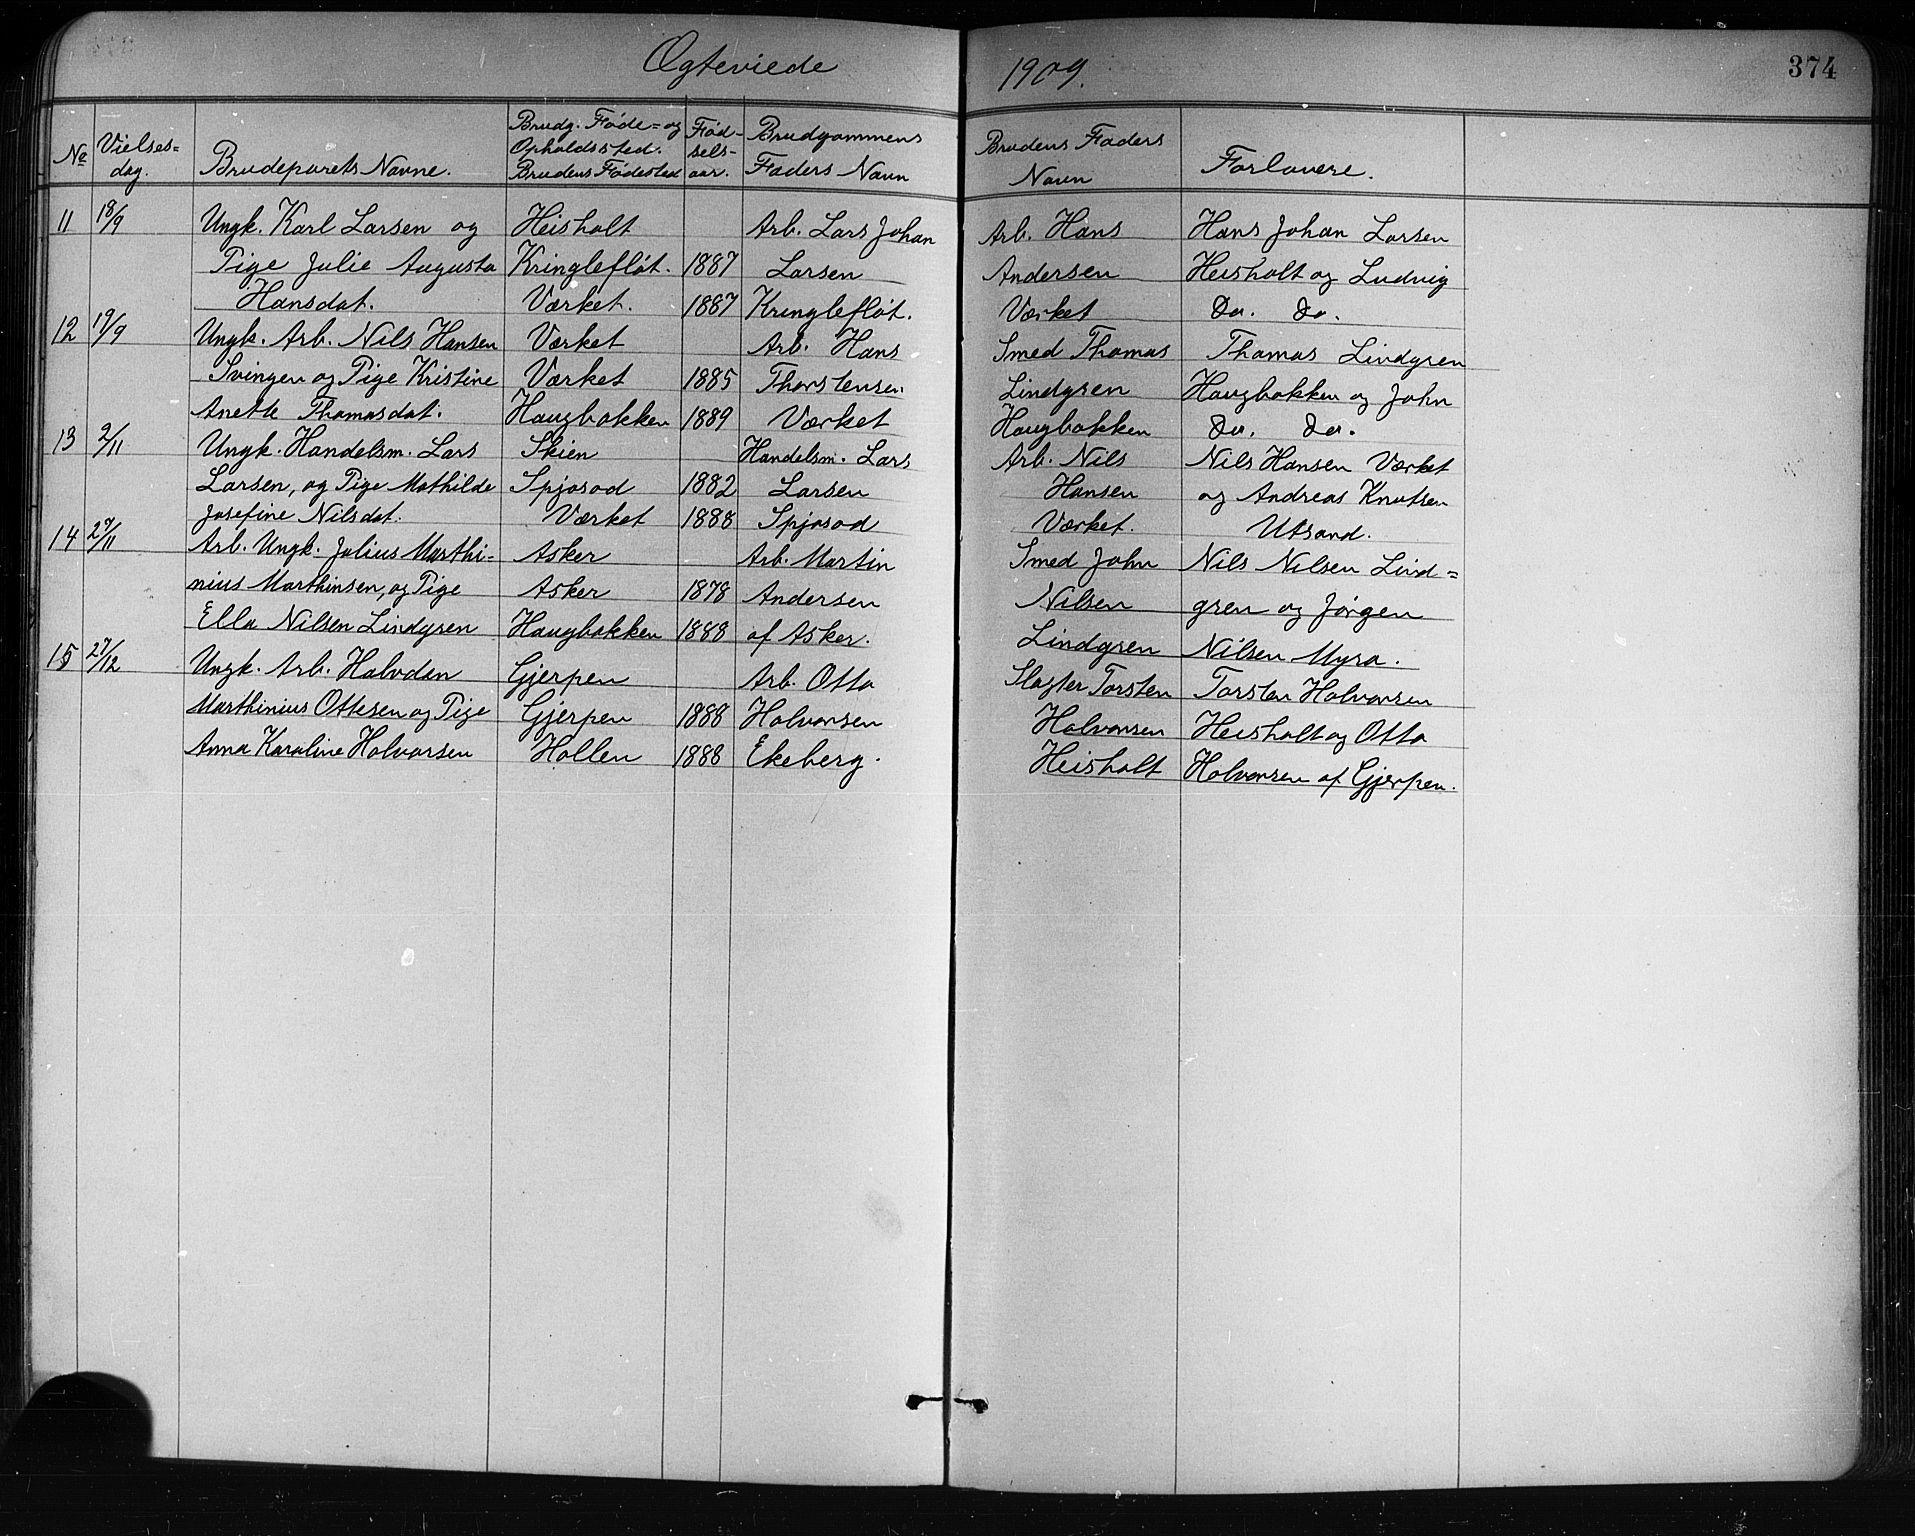 Ægteviede 1909. 374
No Vielses= dag. Brudeparets Navne. Brudg. Føde= og Opholdssted. Brudens Fødested Fød- sels- aar. Brudgommens Faders Navn Brudens Faders Navn Forlovere.
11 18/9 Ungk. Karl Larsen og Heisholt Arb. Lars Johan Arb. Hans Hans Johan Larsen
Pige Julie Augusta Kringlefløt. 1887 Larsen Andersen Heisholt og Ludvig
Hansdat. Værket. 1887 Kringlefløt. Værket Do. Do.
12 19/9 Ungk. Arb. Nils Hansen Værket Arb. Hans Smed Thomas Thomas Lindgren
Svingen og Pige Kristine Værket 1885 Thorstensen Lindgren Haugbakken og John
Anette Thomasdat. Haugbakken 1889 Værket Haugbakken Do. Do.
13 2/11 Ungk. Handelsm. Lars Skien Handelsm. Lars Arb. Nils Nils Hansen Værket
Larsen, og Pige Mathilde Spjosod 1882 Larsen Hansen og Andreas Knutsen
Josefine Nilsdat. Værket 1888 Spjosod Værket. Utsand.
14 29/11 Arb. Ungk. Julius Marthi= Asker Arb. Martin Smed John Nils Nilsen Lind=
nius Marthinsen, og Pige Asker 1878 Andersen Nilsen gren og Jørgen
Ella Nilsen Lindgren Haugbakken 1888 af Asker. Lindgren Nilsen Myra.
15 27/12 Ungk. Arb. Halvdan Gjerpen Arb. Otto Slagter Torsten Torsten Halvorsen
Marthinius Ottesen og Pige Gjerpen 1888 Halvorsen Halvorsen Heisholt og Otto
Anna Karoline Halvorsen Hollen 1888 Ekeberg. Heisholt Halvorsen af Gjerpen.